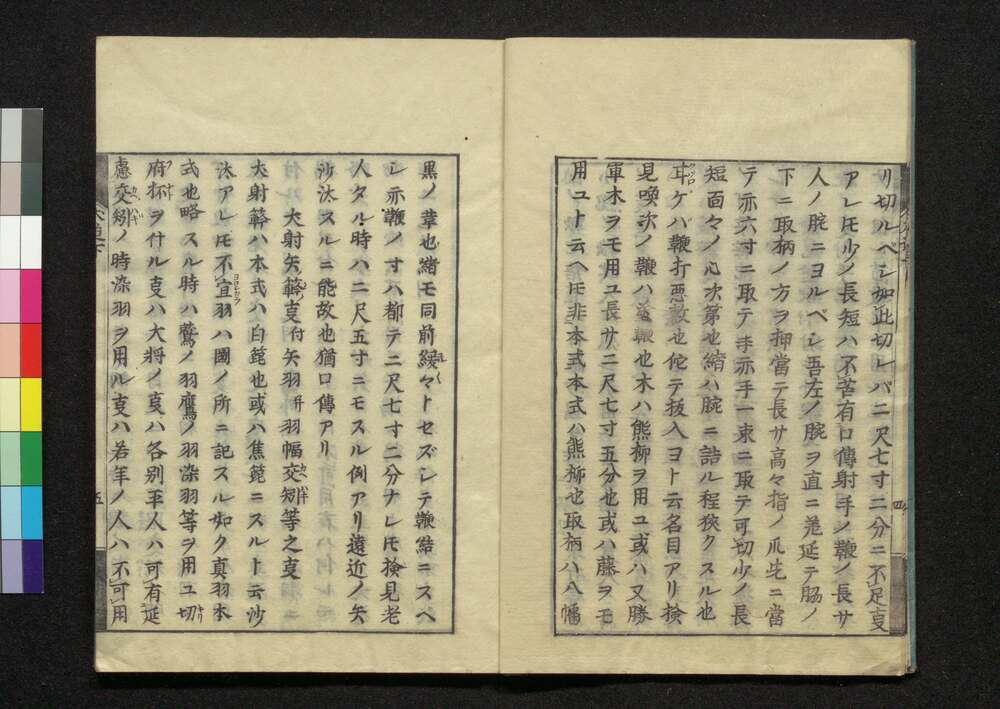 リ切ルベシ如此切レバ二尺七寸二分ニ不足叓
アレ𪜈少ノ長短ハ不苦有口傳射手ノ鞭ノ長サ
人ノ腕ニヨルベシ吾左ノ腕ヲ直ニ差延テ脇ノ
下ニ取柄ノ方ヲ抑當テ長サ高々指ノ爪先ニ當
テ亦六寸ニ取テ亦手一束ニ取テ可切少ノ長
短面々ノ心次第也緒ハ腕ニ詰ル程狹クスル也
耳ケバ鞭打悪敷也佗テ抜入ヨト云名目アリ検
見喚次ノ鞭ハ鞭也木ハ熊柳ヲ用ユ或ハ又勝
軍木ヲモ用ユ長サ二尺七寸五分也或ハ藤ヲモ
用ユト云ヘ𪜈非本式本式ハ熊柳也取柄ハ八幡
四
黒ノ葦也緒モ同前緩々トセズシテ鞭結ニスベ
シ亦鞭ノ寸ハ都テ二尺七寸二分ナレ𪜈検見老
人タル時ハ二尺五寸ニモスル例アリ遠近ノ矢
沙汰スルニ能故也猶口傳アリ
犬射矢簳叓付矢羽并羽幅交短等之叓
犬射簳ハ本式ハ白箆也或ハ焦箆ニスルト云沙
汰アレ𪜈不宜羽ハ圖ノ所ニ記スル如ク真羽本
式也略スル時ハ鷲ノ羽鷹ノ羽染羽等ヲ用ユ切
府抔ヲ什ル叓ハ大将ノ叓ハ各別平人ハ可有延
慮交ノ時染羽ヲ用ル叓ハ若年ノ人ハ不可用
五